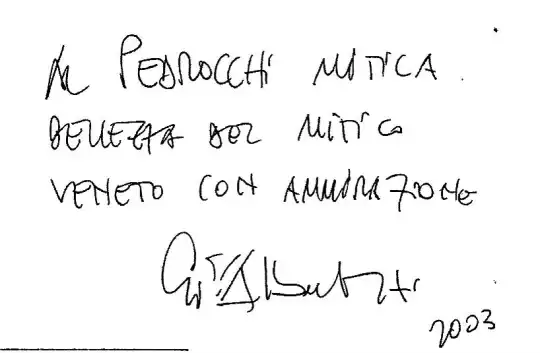 AL PEDROCCHI MITICA
BELLEZZA DEL MITICO
VENETO CON AMMIRAZIONE
2003